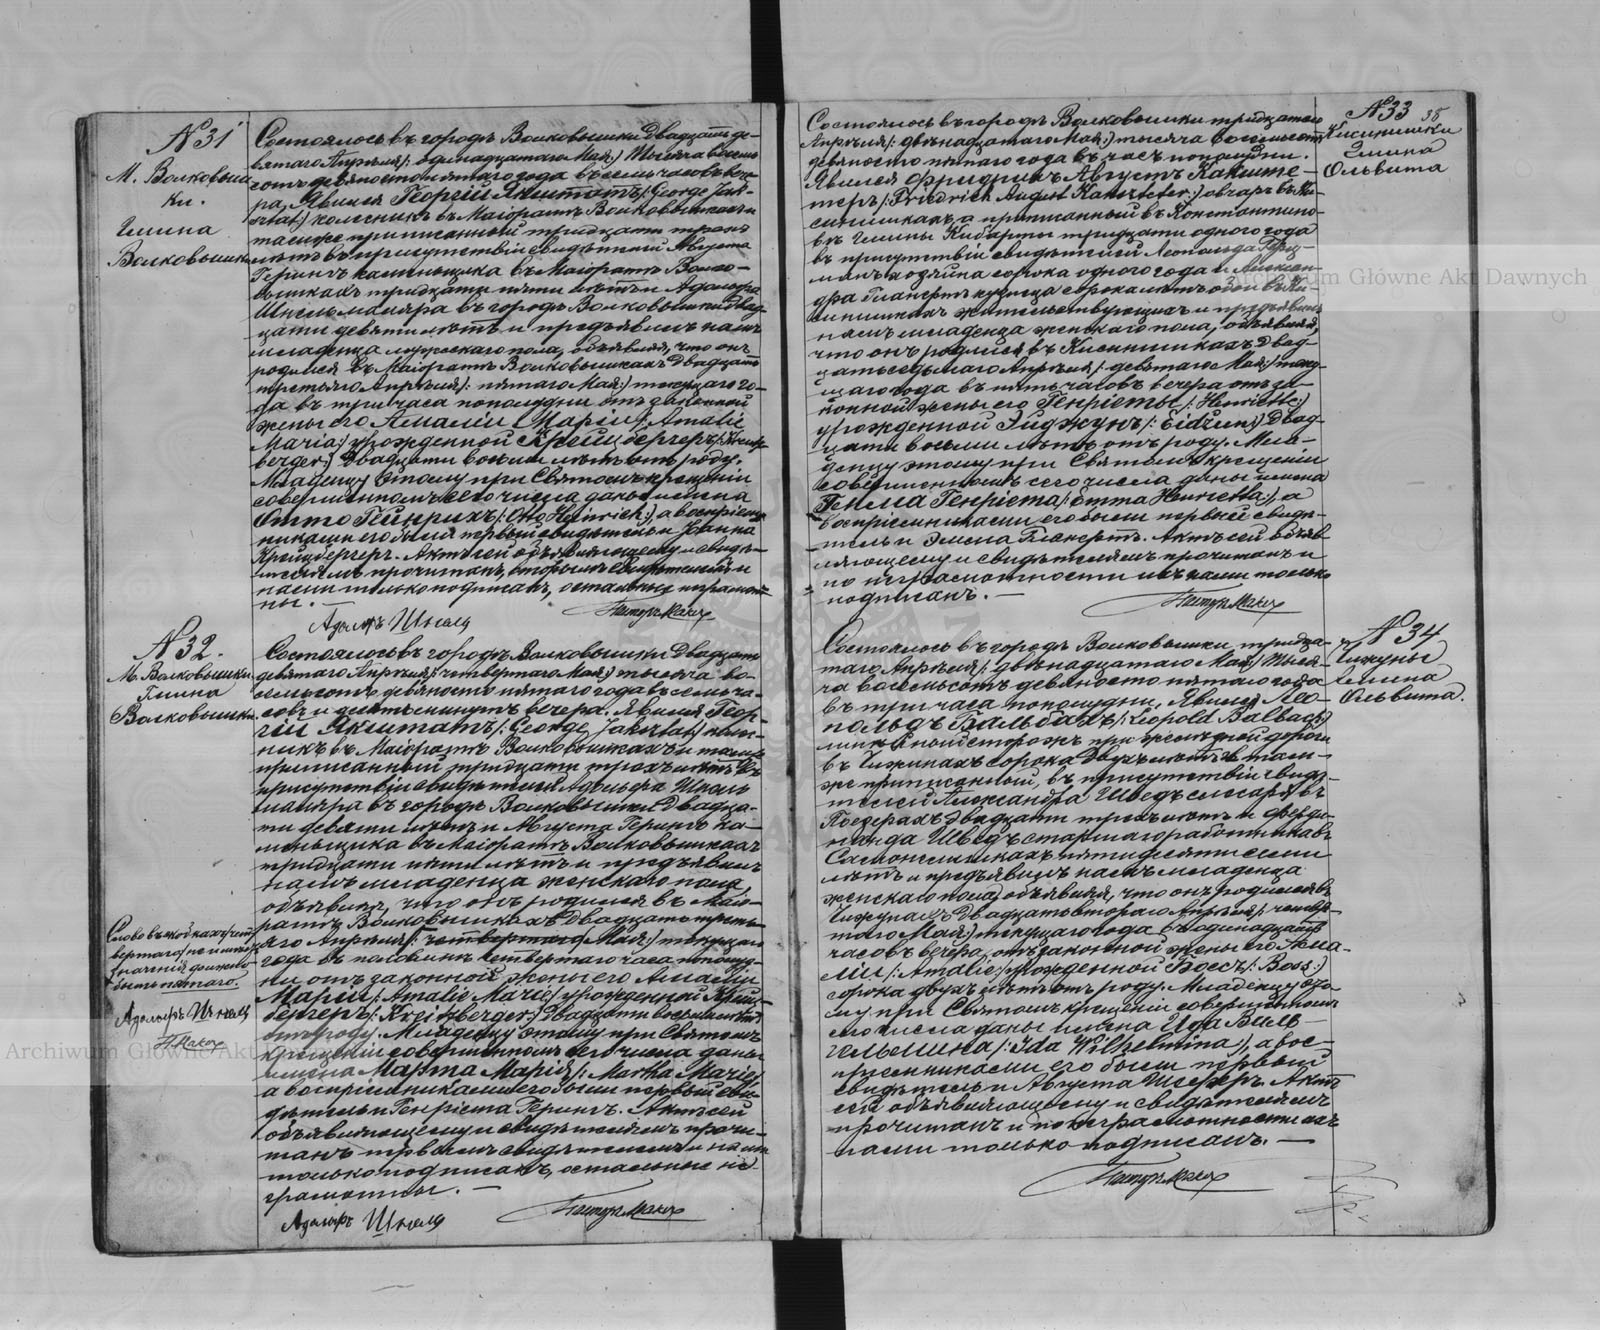 № 31
М. Волковыш
ки.
Гмина
Волковышки
Состоялось въ городѣ Волковышки двадцать де-
вятаго Апрѣля /: одинадцатаго Мая :/ тысяча восемь
сотъ девяносто пятаго года въ семь часовъ вече-
ра. Явился Георгій Якштатъ /: George Jak-
sztat :/ колесникъ въ Маіоратѣ Волковышкахъ и
тамже приписанный тридцати трехъ
лѣтъ въ присутствіи свидѣтелей Августа
Герингъ каменьщика въ Маіоратѣ Волко-
вышкахъ тридцати пяти лѣтъ и Адольфа
Шнель маляра въ городѣ Волковышки двад-
цати девяти лѣтъ и предъявилъ намъ
младенца мужескаго пола, объявляя, что онъ
родился въ Маіоратѣ Волковышкахъ двадцать
третьяго Апрѣля /: пятаго Мая :/ текущаго го-
да въ три часа пополудни отъ законной
жены его Амаліи Маріи /: Amalie
Maria :/ урожденной Крейцбергеръ /: Kreitz-
berger :/ двадцати восьми лѣтъ отъ роду.
Младенцу этому при Святомъ крещеніи
совершенномъ сего числа даны имена
Отто Гейнрихъ /: Otto Heinrich :/, а воспріем-
никами его были первый свидѣтель и Іоанна
Крейцбергеръ. Актъ сей объявляющему и свидѣ-
телямъ прочитанъ, вторымъ свидѣтелемъ и
нами только подписанъ, остальные неграмот-
ны. —
Адольфъ Шнель
Пасторъ
№ 32.
М. Волковышки
Гмина
Волковышки.
Состоялось въ городѣ Волковышки двадцать
девятаго Апрѣля /: четвертаго Мая :/ тысяча во-
семьсотъ девяносто пятаго года въ семь ча-
совъ и десять минутъ вечера. Явился Геор-
гій Якштатъ /: George Jaksztat :/
въ Маіоратѣ Волковышкахъ и тамже
приписанный тридцати трехъ лѣтъ въ
присутствіи свидѣтелей Адольфа Шнель
маляра въ городѣ Волковышки двадца-
ти девяти лѣтъ и Августа Герингъ ка-
меньщика въ Маіоратѣ Волковышкахъ
тридцати пяти лѣтъ и предъявилъ
намъ младенца женскаго пола,
объявляя, что онъ родился въ Маіо-
ратѣ Волковышкахъ двадцать треть-
яго Апрѣля /: четвертаго Мая :/ текущаго
года въ половинѣ четвертаго часа пополуд-
ни отъ законной жены его Амаліи
Маріи /: Amalie Marie :/ урожденной Крейц-
бергеръ /: Kreitzberger :/ двадцати восьми лѣтъ
отъ роду. Младенцу этому при Святомъ
крещеніи совершенномъ сего числа даны
имена Марта Марія /: Martha Marie :/
а воспріемниками его были первый сви-
дѣтель и Генріета Герингъ. Актъ сей
объявляющему и свидѣтелямъ прочи-
танъ первымъ свидѣтелемъ и нами
только подписанъ, остальные не-
грамотны. —
Адольфъ Шнель
Пасторъ
Слово въ
вертаго не имѣетъ
значенія должно
быть пятаго.
Адольфъ Шнель
№ 33
38
Кисинишки
Гмина
Ольвита
Состоялось въ городѣ Волковышки тридцатаго
Апрѣля /: двѣнадцатаго Мая :/ тысяча восемьсотъ
девяносто пятаго года въ часъ пополудни.
Явился Фридрихъ Августъ
/: Friedrich August :/ овчаръ въ Ки-
синишкахъ, а приписанный въ Константино-
въ Гмины Кибарты тридцати одного года
въ присутствіи свидѣтелей Леопольда
хозяина сорока одного года и Алексан-
дра кузнеца сорока лѣтъ обои въ Ки-
синишкахъ жительствующихъ и предъявилъ
намъ младенца женскаго пола, объявляя,
что онъ родился въ Кисинишкахъ двад-
цать седьмаго Апрѣля /: девятаго Мая :/ теку-
щаго года въ пять часовъ вечера отъ за-
конной жены его Генріеты /: Henriette :/
урожденной Эйджунъ /: Eidzun :/ двад-
цати восьми лѣтъ отъ роду. Мла-
денцу этому при Святомъ крещеніи
совершенномъ сего числа даны имена
Гемма Генріета /: Emma Henrietta :/, а
воспріемниками его были первый свидѣ-
тель и Эмма. Актъ сей объяв-
ляющему и свидѣтелямъ прочитанъ и
по неграмотности ихъ нами только
подписанъ. —
Пасторъ
№ 34
Чижуны
Гмина
Ольвита.
Состоялось въ городѣ Волковышки тридца-
таго Апрѣля /: двѣнадцатаго Мая :/ тыся-
ча восемьсотъ девяносто пятаго года
въ три часа пополудни. Явился Лео-
польдъ Бальбахъ /: Leopold Balbach :/
сторожъ при желѣзной дорогѣ
въ Чижунахъ сорока двухъ лѣтъ и там-
же приписанный, въ присутствіи свидѣ-
телей Александра Шведъ слесаря въ
двадцати трехъ лѣтъ и Ферди-
нанда Шведъ старшаго работника въ
пятидесяти семи
лѣтъ и предъявилъ намъ младенца
женскаго пола, объявляя, что онъ родился въ
Чижунахъ двадцать втораго Апрѣля /: четвер-
таго Мая :/ текущаго года въ одинадцать
часовъ вечера, отъ законной жены его Ама-
ліи /: Amalie :/ урожденной Боссъ /: Boss :/
сорока двухъ лѣтъ отъ роду. Младенцу это-
му при Святомъ крещеніи совершенномъ
сего числа даны имена Ида Виль-
гельмина /: Ida Wilhelmina :/, а вос-
пріемниками его были первый
свидѣтель и Августа Шеферъ. Актъ
сей объявляющему и свидѣтелямъ
прочитанъ и по неграмотности ихъ
нами только подписанъ. —
Пасторъ
Archiwum Główne Akt Dawnych
Archiwum Główne Akt